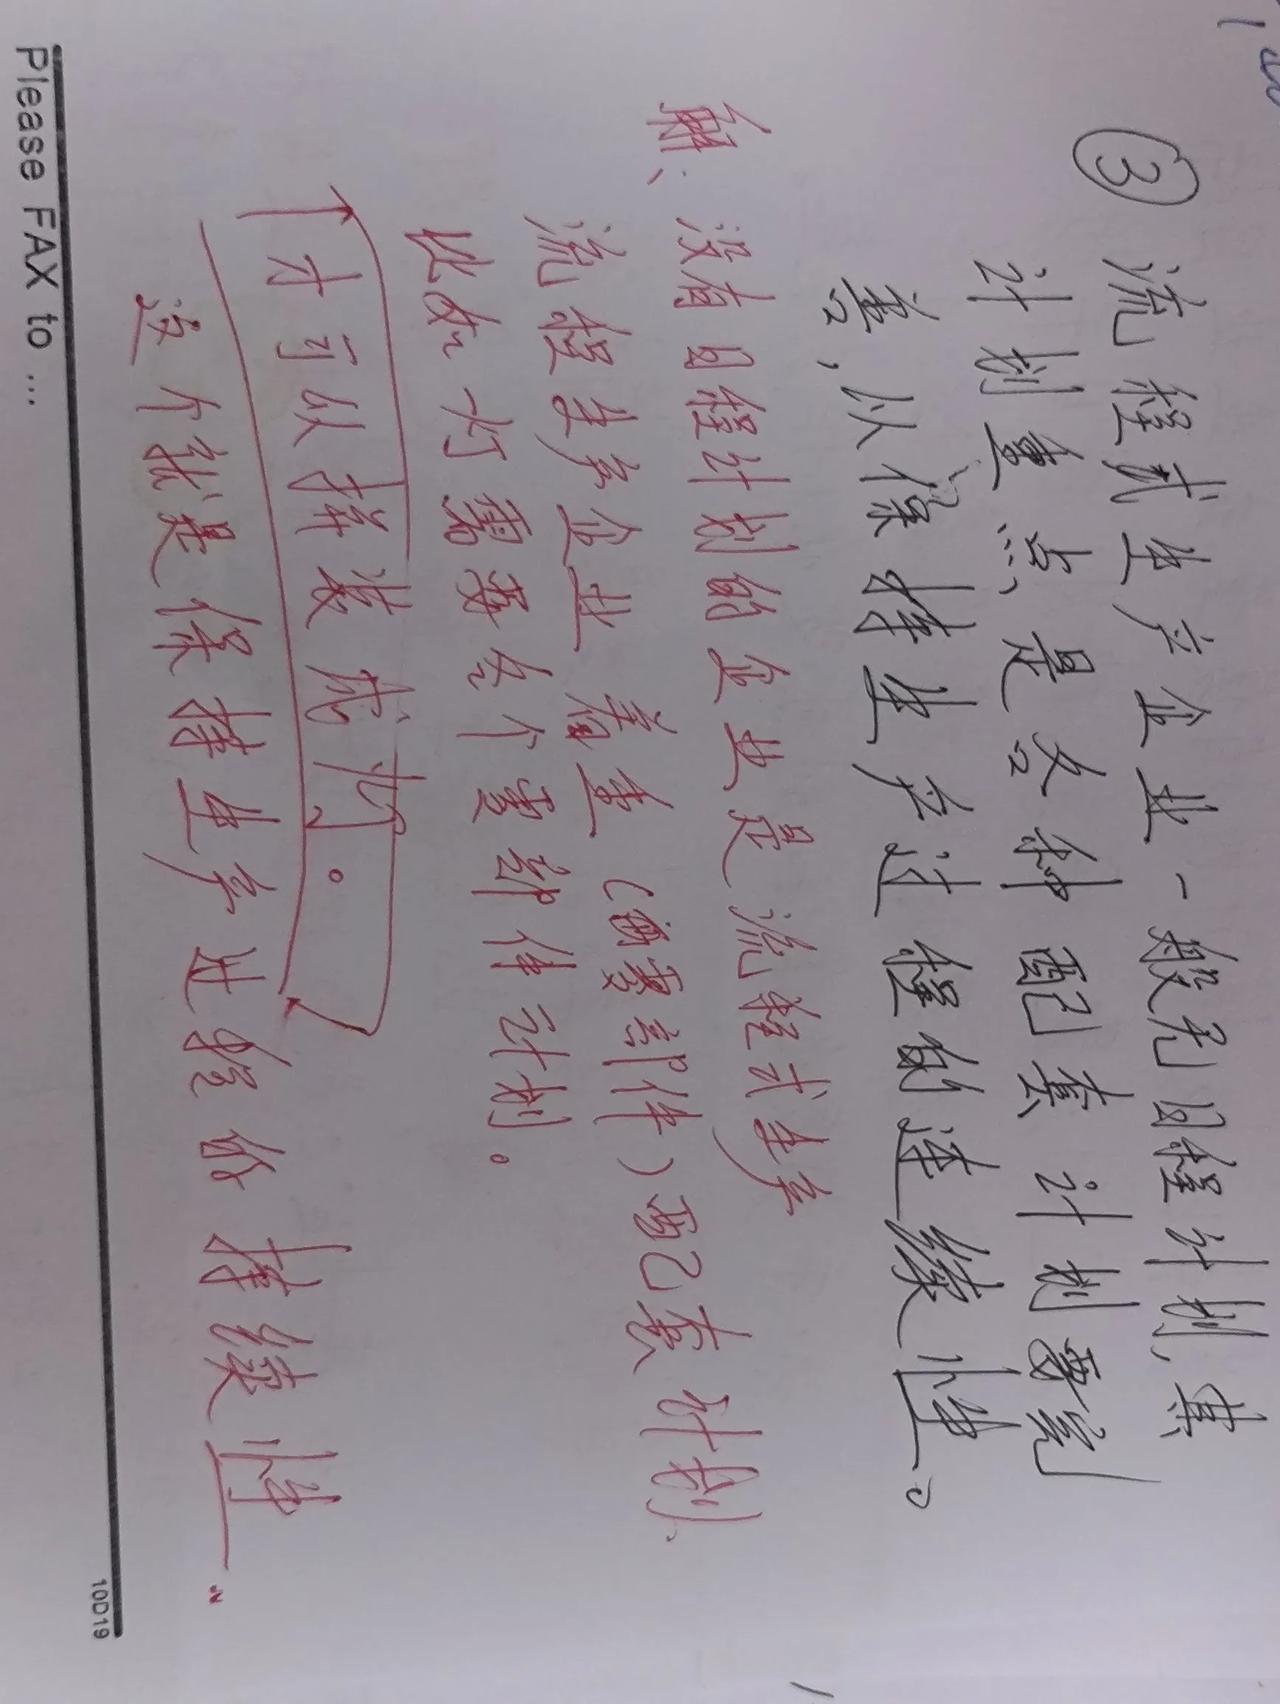 ③ 流程式生产企业一般无日程计划，其
计划重点是各种配套计划要完
善，从保持生产过程的连续性。
解：没有日程计划的企业是流程式生产
流程生产企业 着重（商零部件）配套计划、
比如 灯需要各个零部件计划。
才可以拼装成灯。
这个就是保持生产过程的持续性
Please FAX to ...
10D19